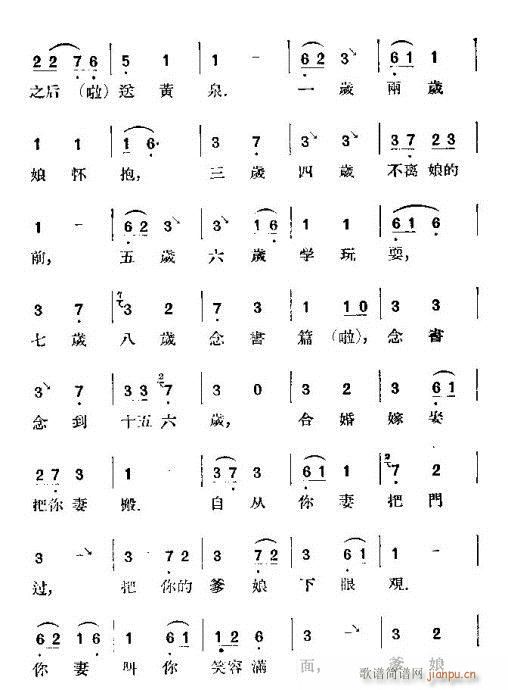 2 2 7 6 | 5 1 | 1 - | 6 2 3↘ | 6 1 1 |
之后(啦)送黄泉. 一歲兩歲
1 1 | 1 6· | 3 7 | 3↘ 3↘ | 3 7 2 3 |
娘怀抱, 三歲四歲不离娘的
1 - | 6 2 3↘ | 3↘ 1 6 | 1 1 | 6 1 6 |
前, 五歲六歲学玩耍,
3 7 | 3 2 | 3 7 | 1 1 0 | 3 3 |
七歲八歲念書篇(啦), 念書
3↘ 7 | 3 3 7 | 3 0 | 3 3 | 3 6 1 |
念到十五六歲, 合婚嫁娶
2 7 3 | 1 - | 3 7 3 | 6 1 1 | 7 2 |
把你妻搬. 自从你妻把門
3 -↘ | 3 7 2 | 3 7 2 | 3 6 1 | 1 - |
过, 把你的爹娘下眼观.
6 2 1 6 | 2 3 | 1 2 6 | 3 - | 3 3 |
你妻叫你笑容满面, 爹娘
歌谱简谱网
jianpu.cn